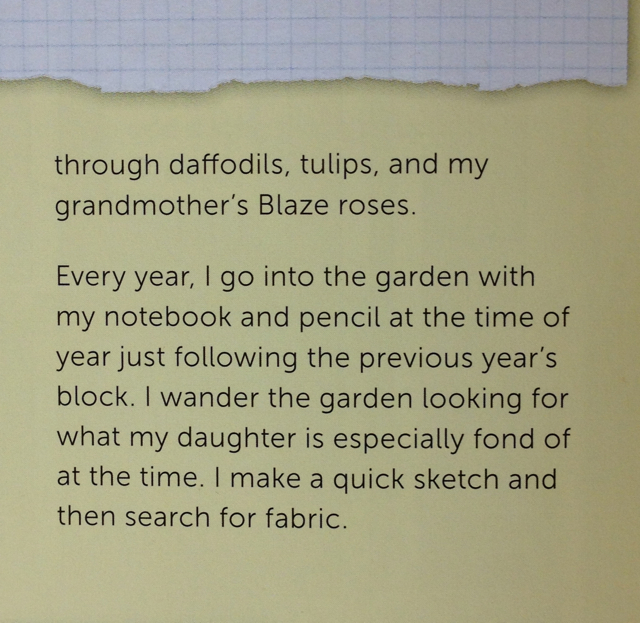 through daffodils, tulips, and my
grandmother's Blaze roses.
Every year, I go into the garden with
my notebook and pencil at the time of
year just following the previous year's
block. I wander the garden looking for
what my daughter is especially fond of
at the time. I make a quick sketch and
then search for fabric.